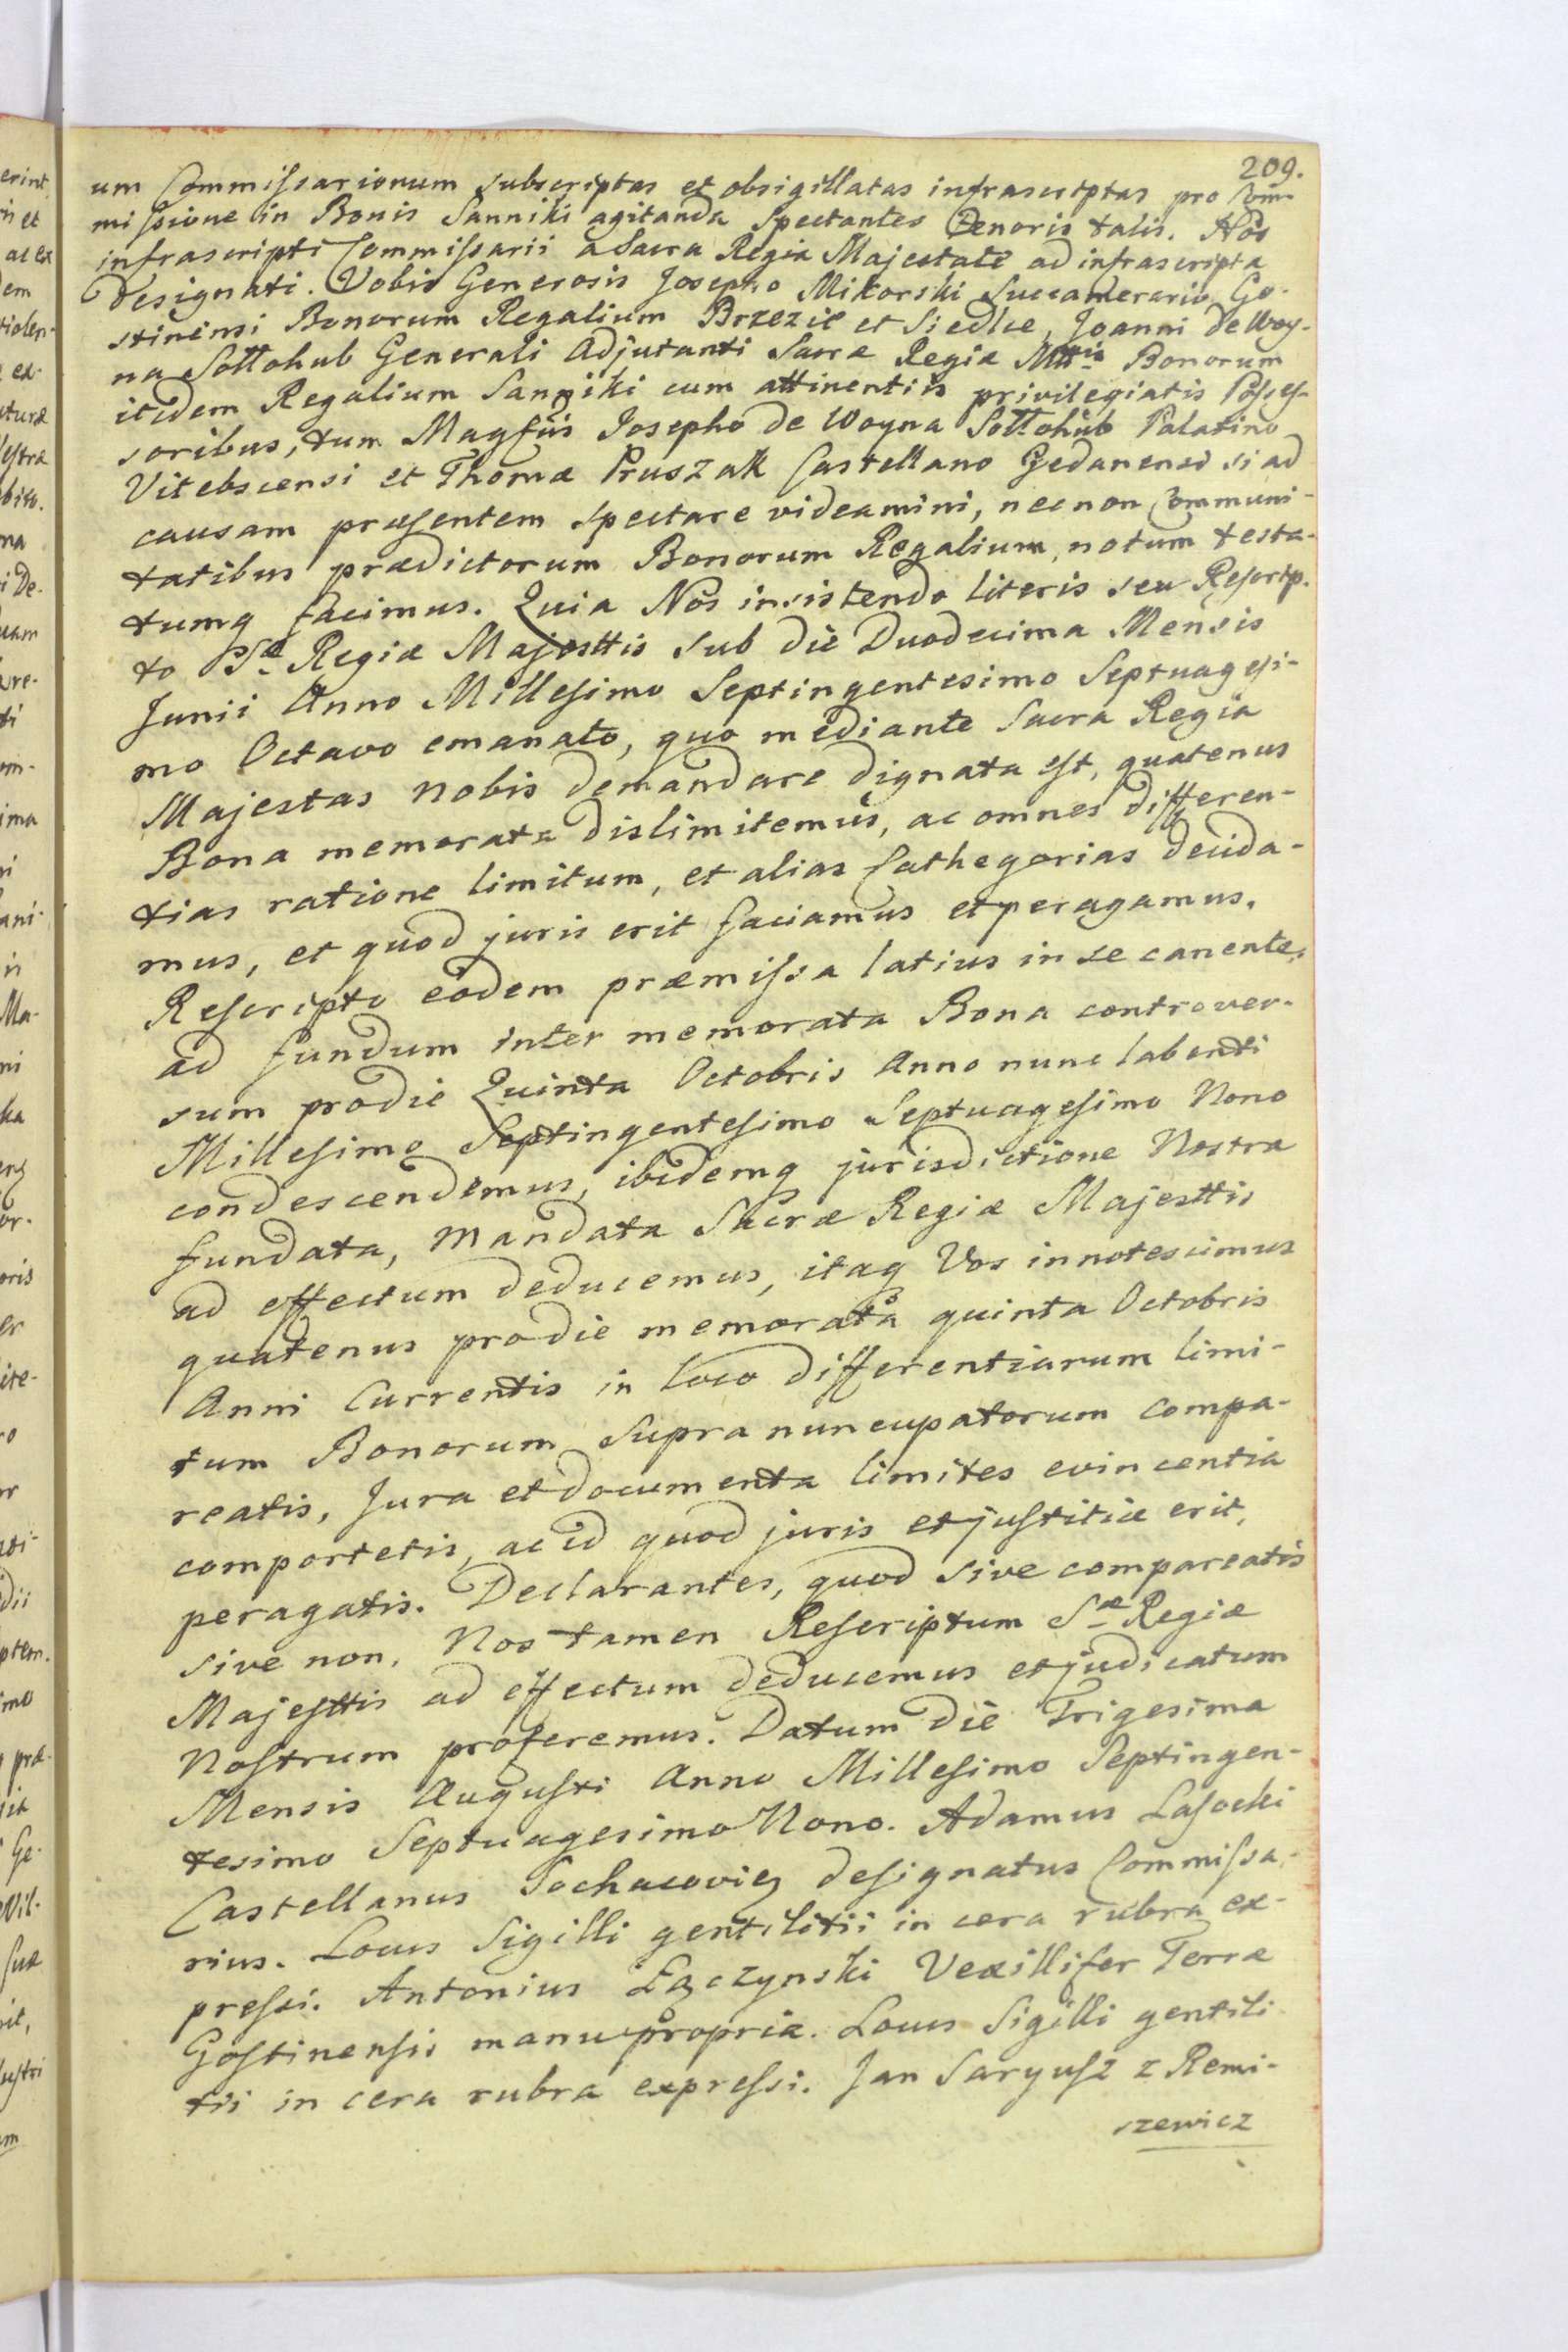 209.
um Commissarionum subscriptas et obsigillatas infrascriptas pro Com-
missione in Bonis Sanniki agitanda Spectantes Tenoris talis. Nos
infrascripti Commissarii a Sacra Regia Majestate ad infrascripta
Designati. Vobis Generosis Josepho Mikorski Succamerario Go-
stinensi Bonorum Regalium Brzezie et Siedlce, Joanni de Woy-
na Sołłohub Generali Adjutanti Sacræ Regiæ Mttis Bonorum
itidem Regalium Sanniki cum attinentiis privilegiatis Posses-
soribus, tum Magfiis Josepho de Woyna Sołłohub Palatino
Vitebscensi et Thomæ Pruszak Castellano Gedanensi si ad
causam præsentem spectare videamini, nec non Communi-
tatibus prædictorum Bonorum Regalium, notum testa-
tumq facimus. Quia Nos insistendo literis seu Rescrip-
to Sæ Regiæ Majesttis sub die Duodecima Mensis
Junii Anno Millesimo Septingentesimo Septuagesi-
mo Octavo emanato, quo mediante Sacra Regia
Majestas nobis demandare dignata est, quatenus
Bona memorata dislimitemus, ac omnes differen-
tias ratione limitum, et alias Cathegorias decida-
mus, et quod juris erit faciamus et peragamus.
Rescripto eodem præmissa latius in se canente,
ad fundum inter memorata Bona controver-
sum pro die Quinta Octobris Anno nunc labenti
Millesimo Septingentesimo Septuagesimo Nono
condescendemus, ibidemq jurisdictione Nostra
fundata, Mandata Sacræ Regiæ Majesttis
ad effectum deducemus, itaq Vos innotescimus
quatenus pro die memorata quinta Octobris
Anni Currentis in loco differentiarum limi-
tum Bonorum supra nuncupatorum compa-
reatis, Jura et documenta limites evincentia
comportetis, ac id quod juris et justitiæ erit,
peragatis. Declarantes, quod sive compareatis
sive non, Nos tamen Rescriptum Sæ Regiæ
Majesttis ad effectum deducemus et judicatum
Nostrum proferemus. Datum die Trigesima
Mensis Augusti Anno Millesimo Septingen-
tesimo Septuagesimo Nono. Adamus Lasocki
Castellanus Sochacovien designatus Commissa-
rius. Locus Sigilli gentilitii in cera rubra ex-
pressi. Antonius Łączynski Vexillifer Terræ
Gostinensis manu propria. Locus Sigilli gentili-
tii in cera rubra expressi. Jan Saryusz z Remi-
szewicz